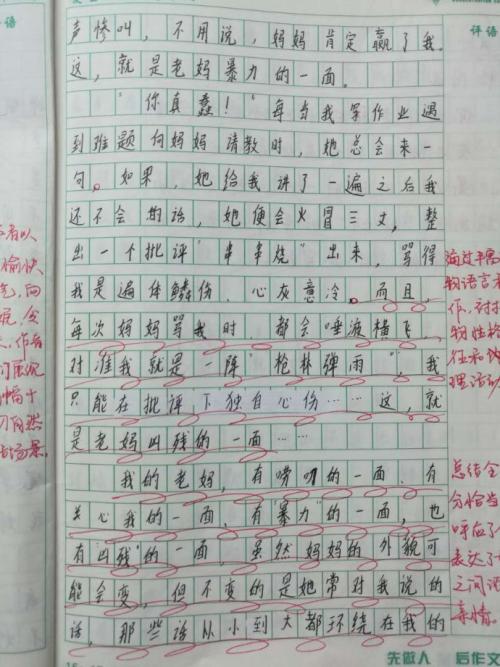 评语
声惨叫，不用说，妈妈肯定赢了我。
这，就是老妈暴力的一面。
“你真蠢！”每当我写作业遇
到难题向妈妈请教时，她总会来一
句。如果，她给我讲了一遍之后我
还不会的话，她便会火冒三丈，整
出一个批评“串串烧”出来，骂得
我是遍体鳞伤，心灰意冷。而且，
每次妈妈骂我时，都会唾液横飞，
对准我就是一阵“枪林弹雨”，我
只能在批评下独自心伤……这，就
是老妈凶残的一面……
我的老妈，有唠叨的一面，有
关心我的一面，有“暴力”的一面，也
有“凶残”的一面，虽然妈妈的外貌可
能会变，但不变的是她常对我说的
话，那些话从小到大都环绕在我的
通过
物语言
作，
物性格
理活动
总结全
分恰当
呼应了
表达了
之间
亲情。
先做人 后作文